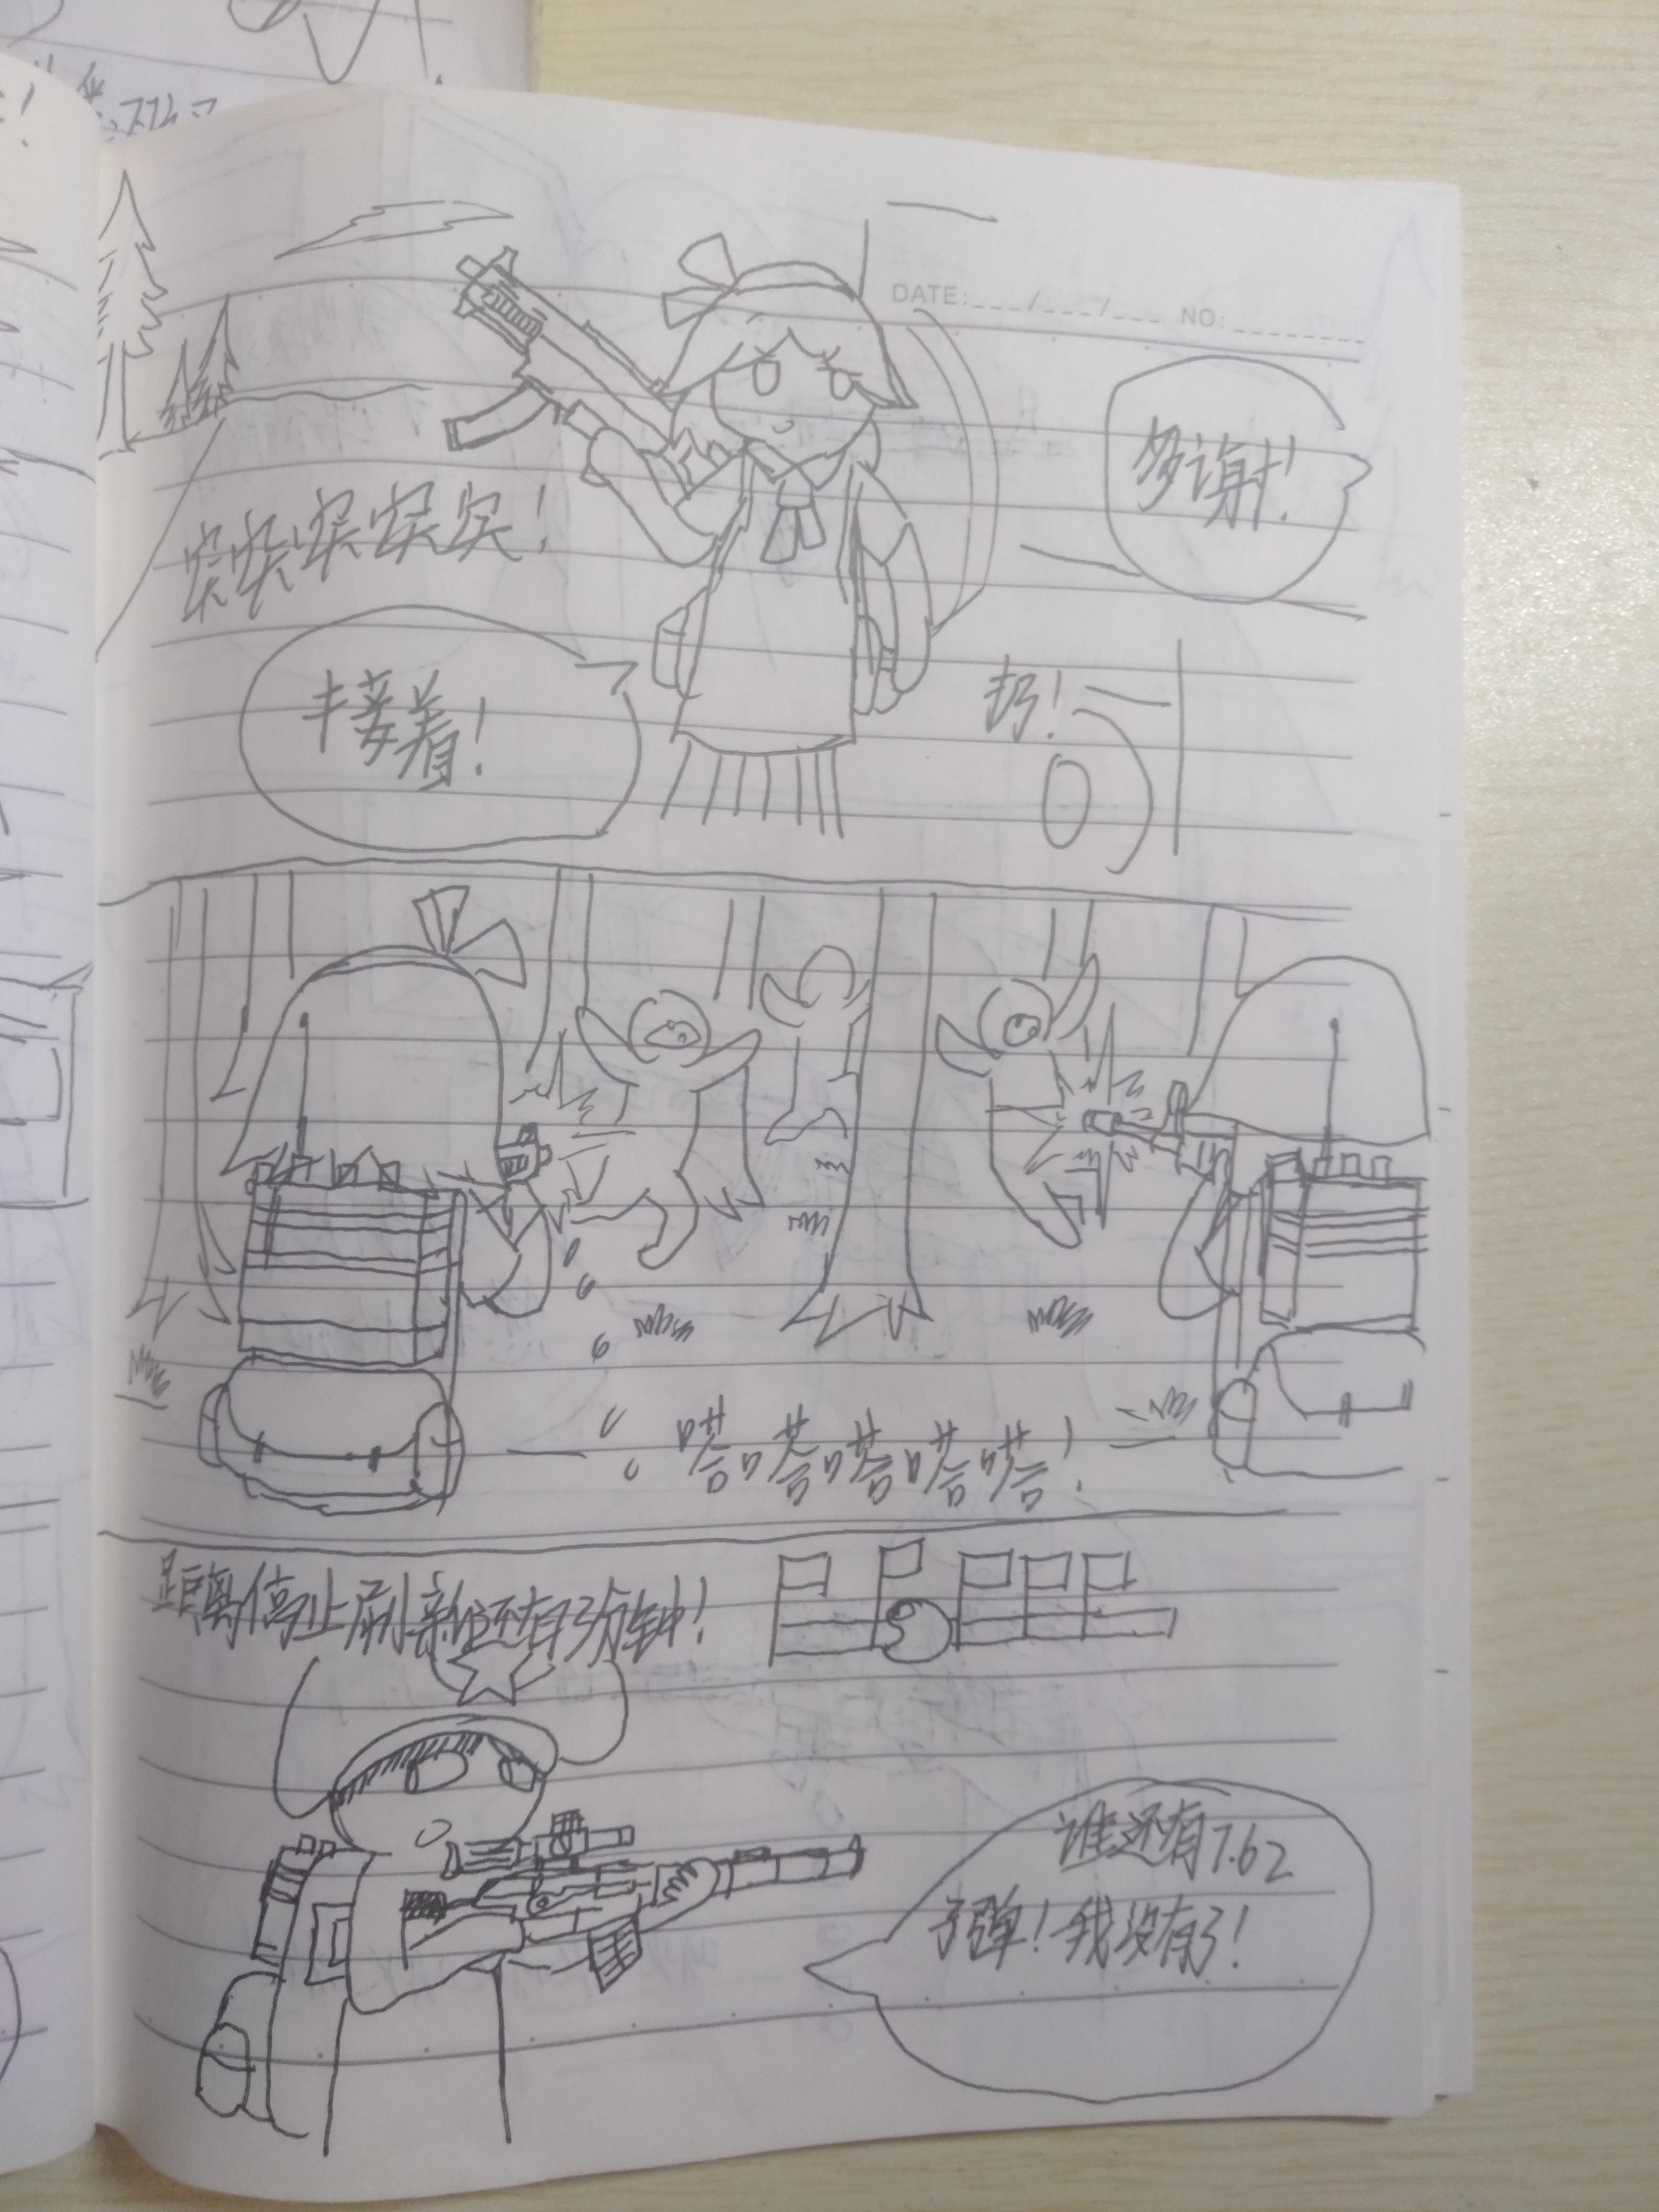 DATE:___/___/___ NO:_______
多谢!
突突突突突!
接着!
扔!
嗒嗒嗒嗒嗒!
距离停止刷新还有3分钟!
谁还有7.62
子弹!我没有了!